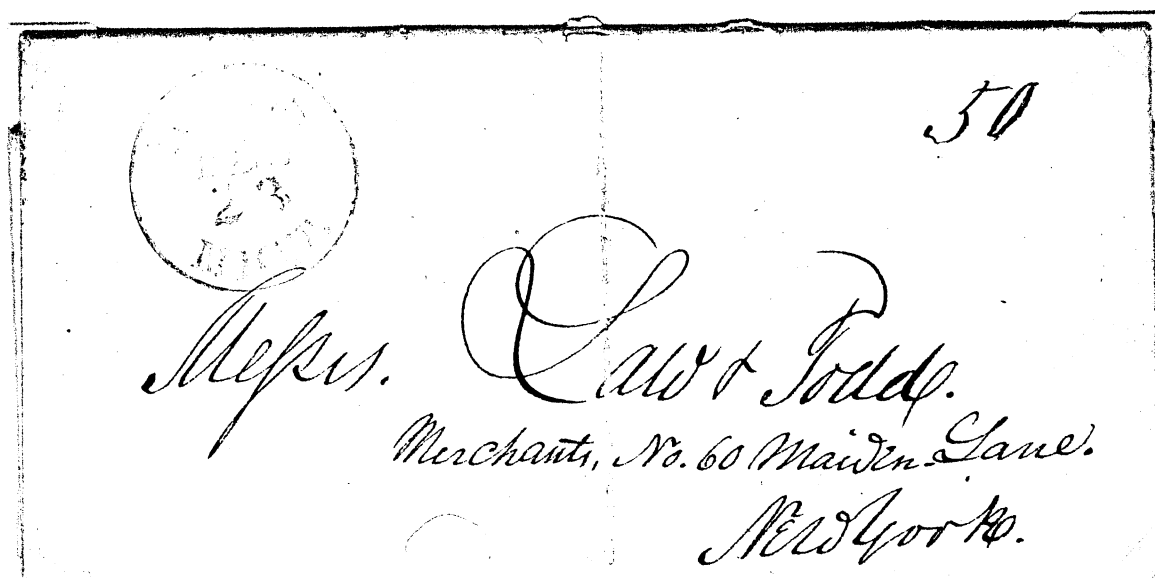 50
23
MICT.
Messrs. Law & Todd.
Merchants, No. 60 Maiden-Lane.
New York.